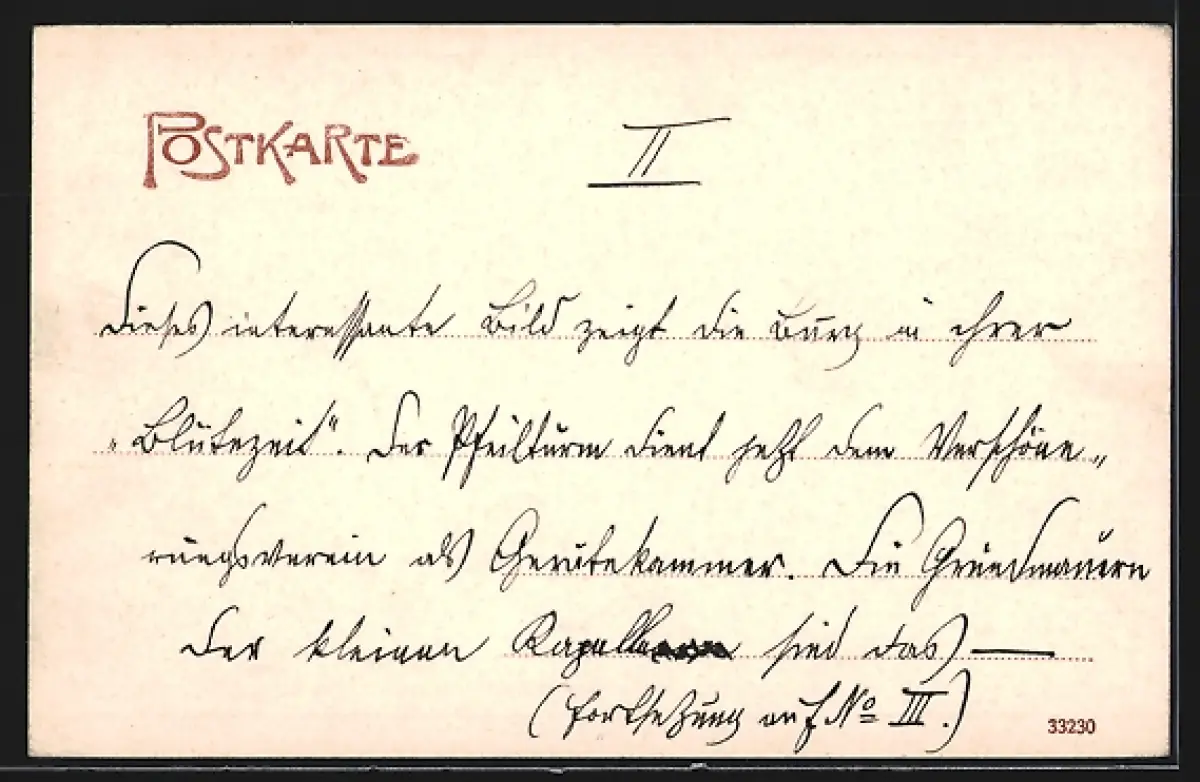 POSTKARTE
II
Dieses interessante Bild zeigt die Burg in ihrer
"Blütezeit". Der Pfeilturm dient jetzt dem Verschöne„
rungsverein als Gerätekammer. Die Grundmauern
der kleinen Kapelle sind das —
(Fortsetzung auf No III.)
33230